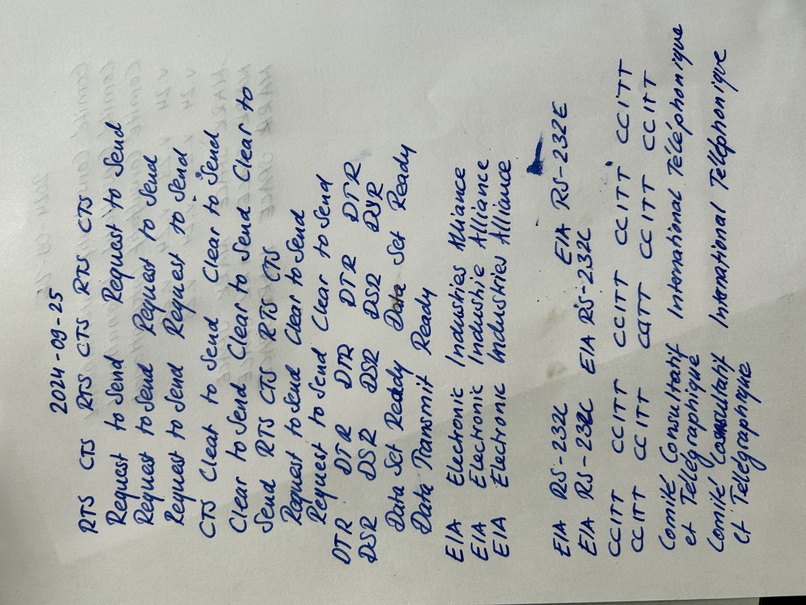 2024-09-25
RTS CTS RTS CTS RTS CTS
Request to Send Request to Send
Request to Send Request to Send
Request to Send Request to Send
CTS Clear to Send Clear to Send
Clear to Send Clear to Send Clear to
Send RTS CTS RTS CTS
Request to Send Clear to Send
Request to Send Clear to Send
DTR DTR DTR DTR DTR
DSR DSR DSR DSR DSR
Data Set Ready Data Set Ready
Data Transmit Ready
EIA Electronic Industries Alliance
EIA Electronic Industrie Alliance
EIA Electronic Industries Alliance
EIA RS-232C EIA RS-232E
EIA RS-232C EIA RS-232C
CCITT CCITT CCITT CCITT CCITT
CCITT CCITT CCITT CCITT CCITT
Comité Consultatif International Téléphonique
et Télégraphique
Comité Consultatif International Telléphonique
et Tellégraphique